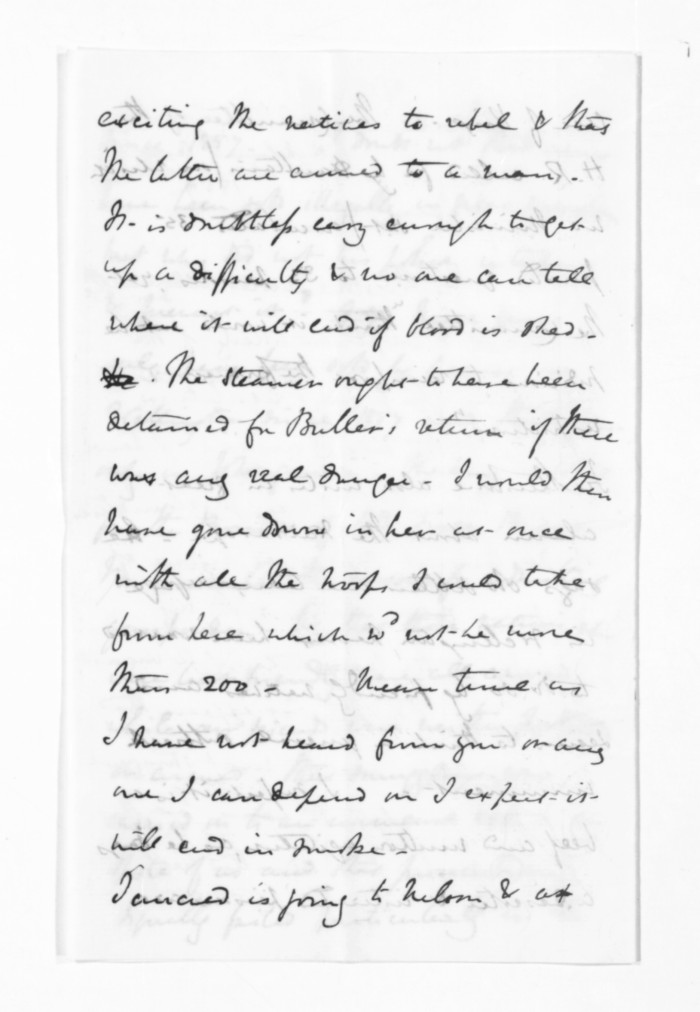 exciting the natives to rebel & that
the latter are armed to a man.
It is doubtless easy enough to get
up a difficulty & no one can tell
where it will end if blood is shed.
The steamer ought to have been
detained for Buller's return if there
was any real danger - I would then
have gone down in her at once
with all the troops I could take
from here which wd not be more
than 200 - Mean time as
I have not heard from you or any
one I can depend on I expect it
will end in smoke -
is going to Nelson & at